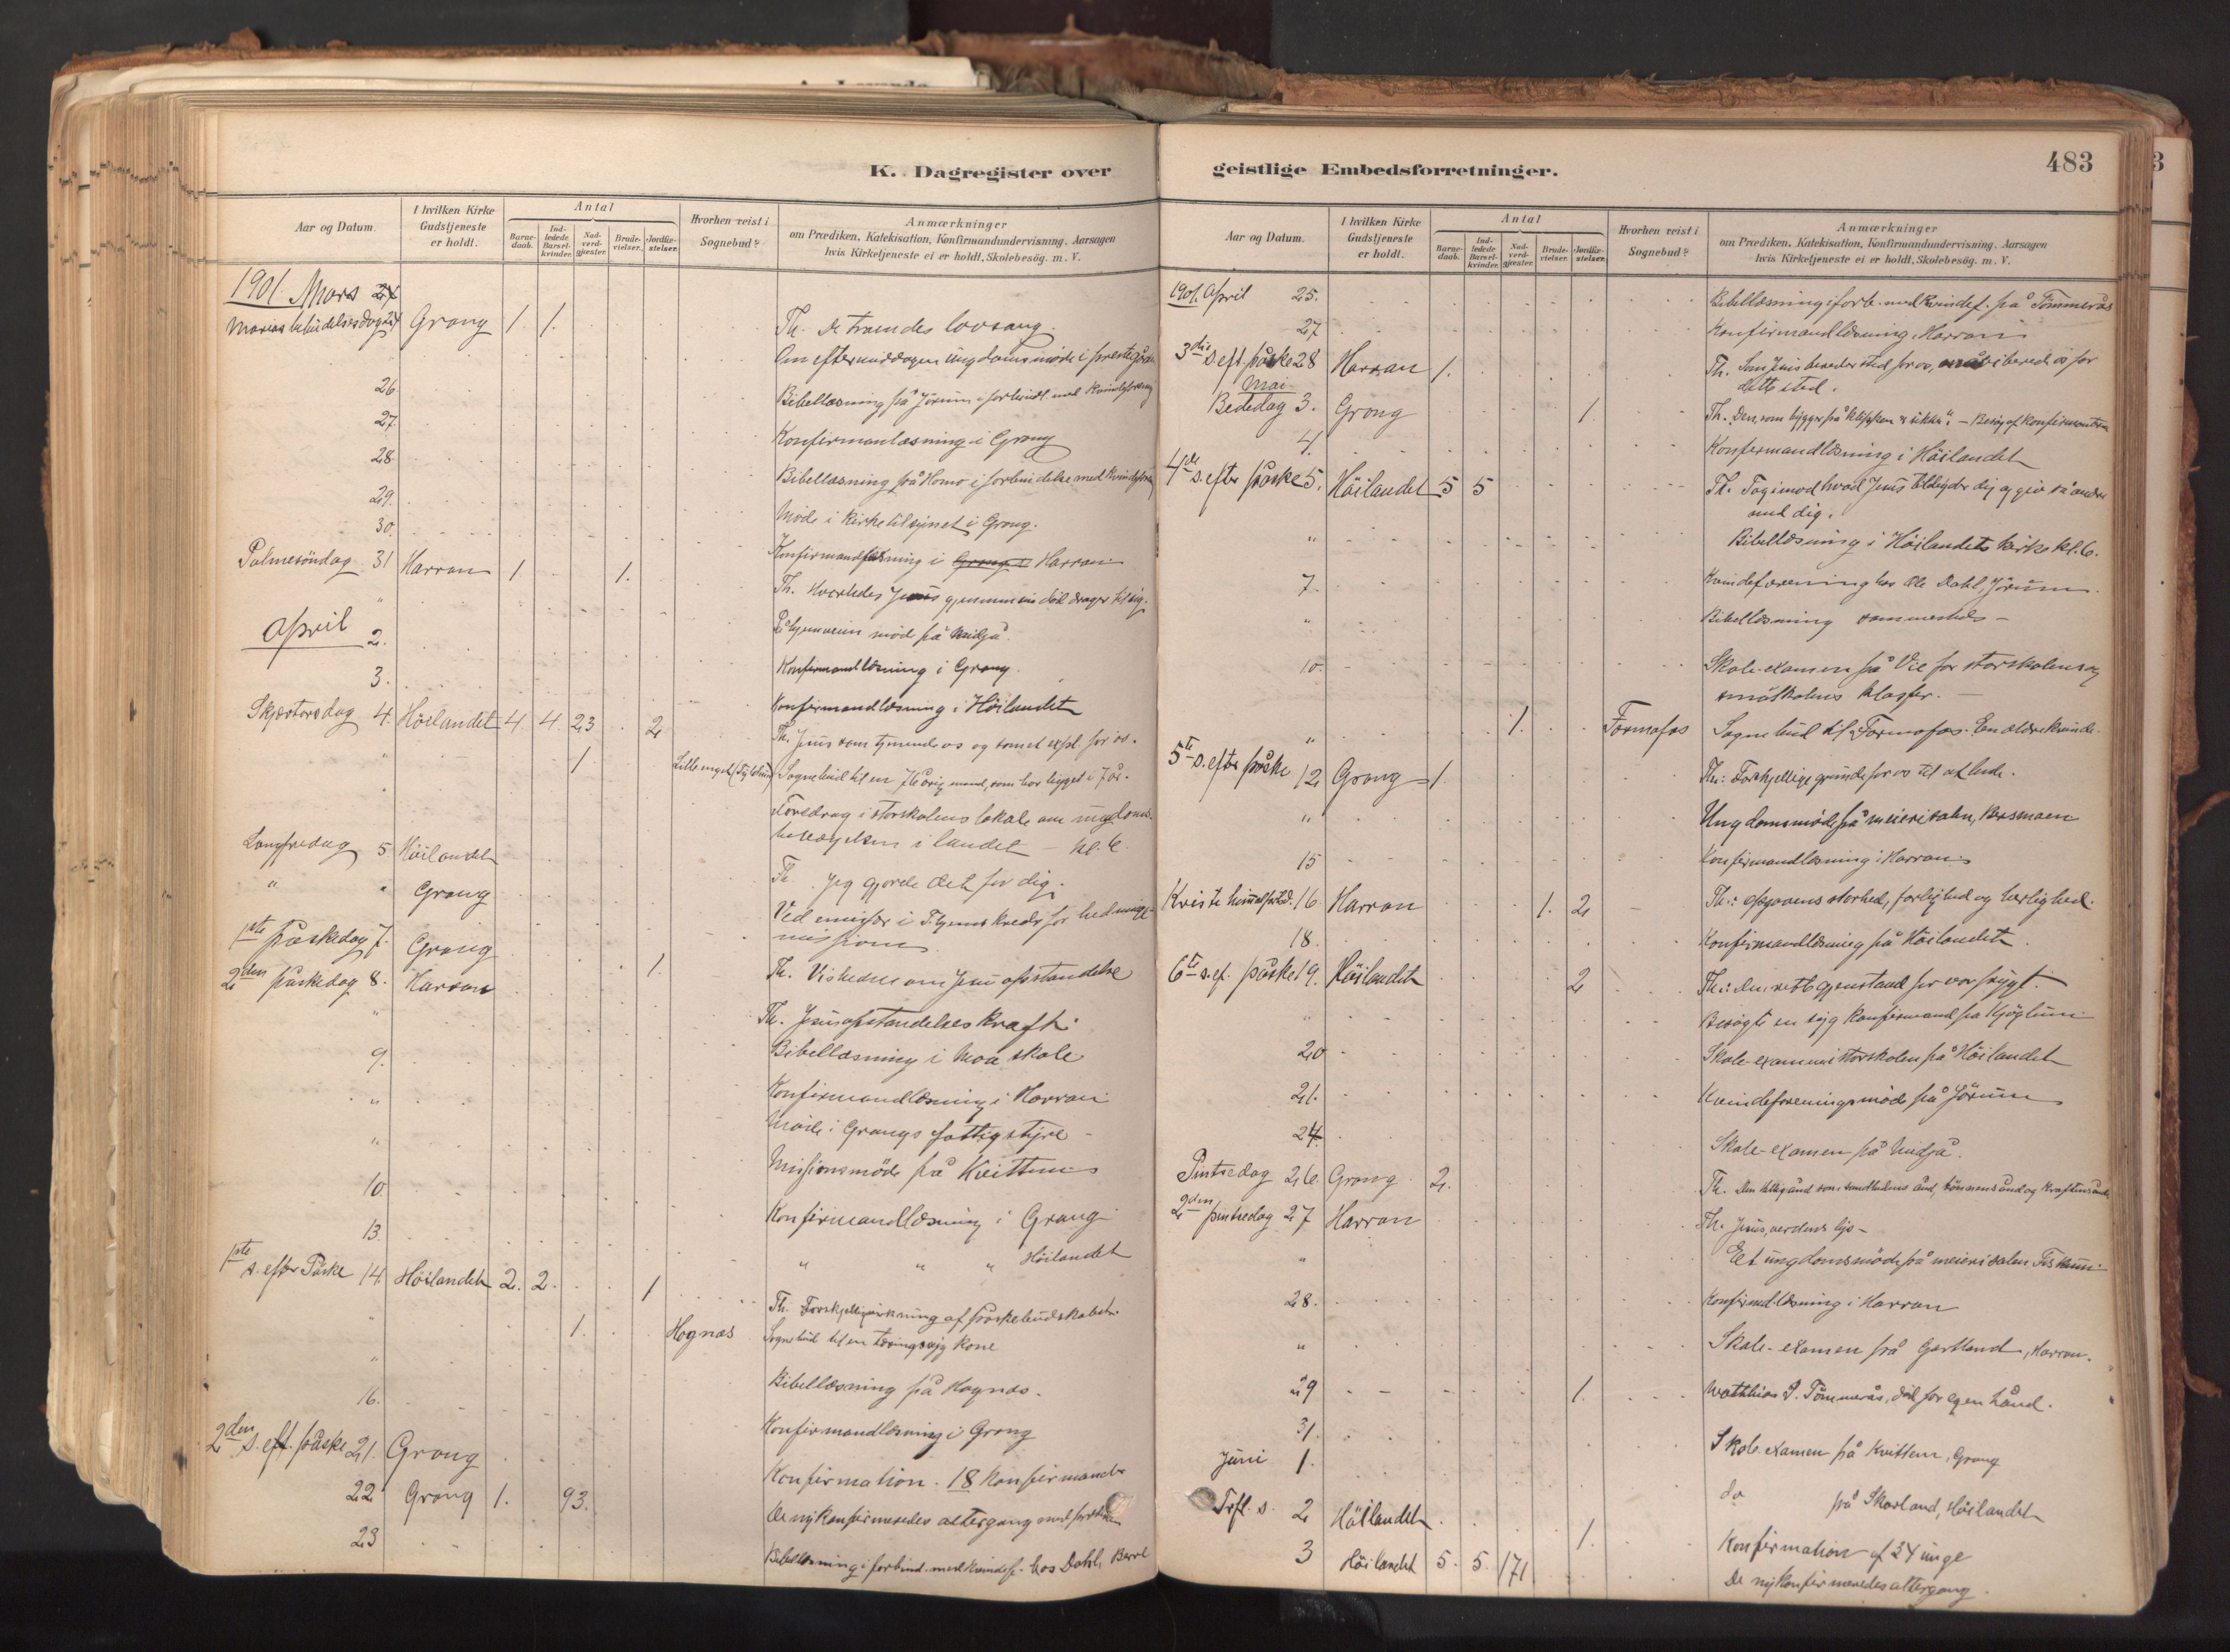 K. Dagregister over
Aar og Datum.
I hvilken Kirke Gudstjeneste er holdt.
Antal
Barne-daab.
Ind-ledede Barsel-kvinder.
Nad-verd-gjester.
Brude-vielser.
Jordfæ-stelser.
Hvorhen reist i Sognebud?
Anmærkninger
om Prædiken, Katekisation, Konfirmandundervisning, Aarsagen
hvis Kirketjeneste ei er holdt, Skolebesøg. m. V.
1901. Mars 24
Marias bebudelsesdag 24 Grong 1. 1. Th. De troendes lovsang.
Om eftermiddagen ungdomsmöde i prestegår
26 Bibellæsning på Jörum i forbind. med Kvindeforening
27. Konfirmanlæsning i Grong
28 Bibellæsning på Homo i forbindelse med Kvindeforen
29. Möde i kirketilsynet i Grong.
30. Konfirmandlæsning i Grong Harran
Palmesöndag 31 Harran 1 1. Th. Hvorledes Jesus gjennem sin död drager til sig.
" möde på
April 2. Konfirmandlæsning i Grong.
3. Konfirmandlæsning i Höilandet
Skjærtorsdag 4. Höilandet 4. 4. 23 2 Th. Jesus som tjenende os og som et expl. for os.
" 1 Sognebud til en 76 årig mand, som har ligget i 7 år.
" Foredrag i storskolens lokale om ungdoms-
bevægelsen i landet – kl. 6.
Langfredag 5 Höilandet Th. Jeg gjorde det for dig.
" " Grong
1ste påskedag 7. Grong Th. Vidnerne om Jesu opstandelse
2den påskedag 8. Harran 1. Th. Jesu opstandelses kraft.
" Bibellæsning i Moa skole
9. Konfirmandlæsning i Harran
" Möde i Grongs fattigstyre –
" Missionsmöde på Kvittem
10. Konfirmandlæsning i Grong
13. " " " Höilandet
1ste s. efter Påske 14. Höilandet 2. 2. 1 Th. Forskjellig virkning af påskebudskabet.
" 1. Høgnæs Sognebud til en tæringssyg kone
" Bibellæsning på Høgnæs.
16. Konfirmandlæsning i Grong
2den s. eft. påske 21. Grong Konfirmation. 18 konfirmander
22 Grong 1. 93. De nykonfirmeredes altergang
23 Bibellæsning i forbind. med kvindef. hos Dahl,
geistlige Embedsforretninger.
483
Aar og Datum.
I hvilken Kirke Gudstjeneste er holdt.
Antal
Barne-daab.
Ind-ledede Barsel-kvinder.
Nad-verd-gjester.
Brude-vielser.
Jordfæ-stelser.
Hvorhen reist i Sognebud?
Anmærkninger
om Prædiken, Katekisation, Konfirmandundervisning, Aarsagen
hvis Kirketjeneste ei er holdt, Skolebesøg. m. V.
1901. April 25. Bibellæsning i forb. med kvindef. på Tömmerås
27 Konfirmandlæsning i Harran
3die s. eft. påske 28 Harran 1. Th. Som Jesus bereder sted for os, må vi berede os for
dette sted.
Mai
Bededag 3. Grong 1. Th. Den, som bygger på klippen er sikker". – Besög af konfirmanterne
4. Konfirmandlæsning i Höilandet
4de s. efter påske 5. Höilandet 5 5 Th. Tag imod hvad Jesus tildeler dig og giv så andre
med dig.
" Bibellæsning i Höilandets kirke kl. 6.
7. Kvindeforening hos Ole Dahl, Jörum.
" Bibellæsning sammesteds –
10. Skole-examen på Vie for storskolens og
småskolens klasser. –
" 1. Formofos Sognebud til Formofos. En ældre kvinde.
5te s. efter påske 12 Grong 1. Th: Forskjellige grunde for os til at bede.
" Ungdomsmöde på meierisalen, Bersmoen
15 Konfirmandlæsning i Harran
Kristi himmelfartsd. 16. Harran 1. 2 Th.: opgavens storhed, farlighed og herlighed.
18. Konfirmandlæsning på Höilandet.
6te s. ef. påske 19. Höilandet 2 Th.: Den rette gjenstand for vor frygt.
" Besögte en syg konfirmand på Kjöglum
20 Skole-examen i storskolen på Höilandet
21. Kvindeforeningsmöde på Jörum
24. Skole-examen på
Pintsedag 26. Grong 2. Th. Den hellig ånd som sandhedens ånd, bönnens ånd og kraftens ånd
2den pintsedag 27 Harran Th. Jesus, verdens lys –
" Et ungdomsmöde på meierisalen Fiskum
28. Konfirmd.læsning i Harran
" Skole-examen på Gartland, Harran.
29 1. Matthias P. Tömmerås, död for egen hånd.
31. Skole examen på Kvittem, Grong
Juni 1. do på Skarland, Höilandet
Trfl. s. 2 Höilandet 1. Konfirmation af 34 unge
3 Höilandet 5. 5. 171 De nykonfirmeredes altergang.